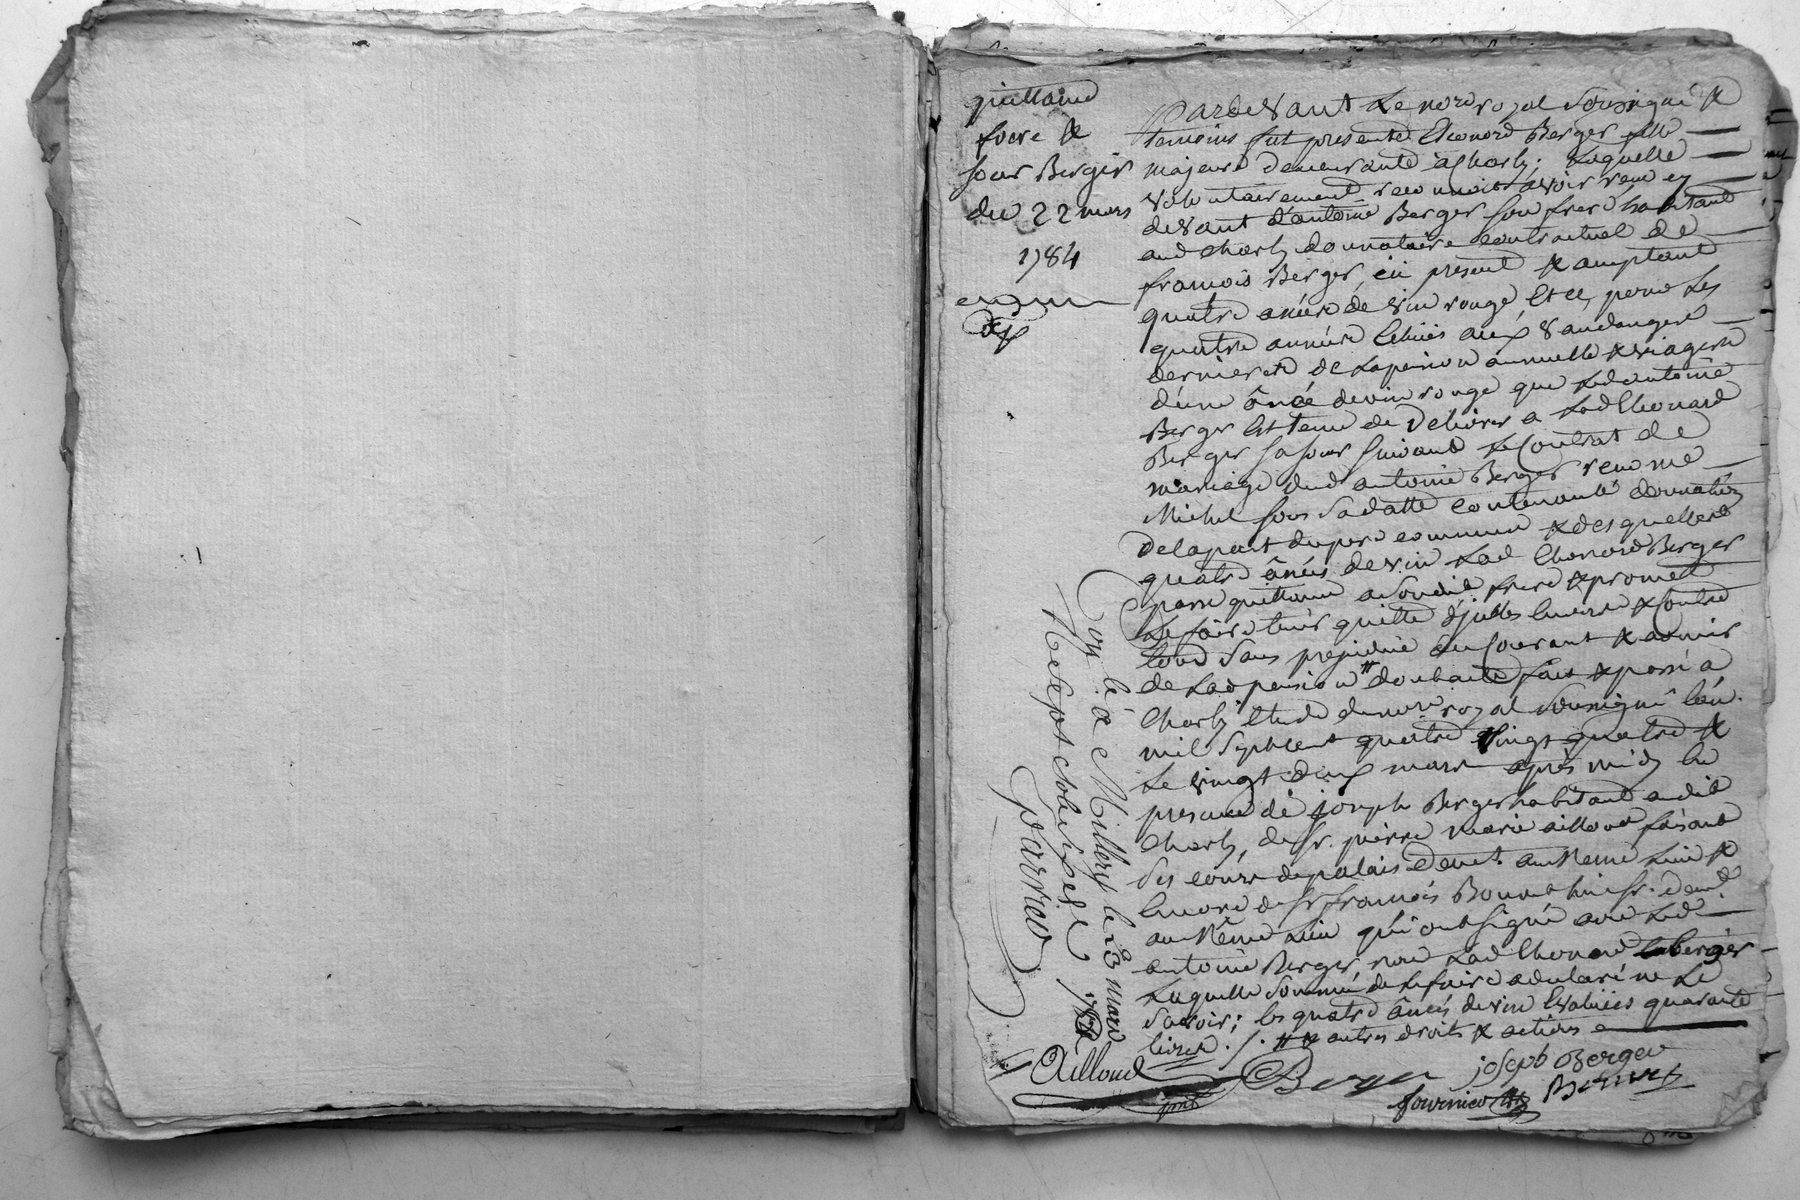 quittance
frere &
soeur Berger
du 22 mars
1784
Pardevant Le nore royal soussigné &
temoins fut presente Eleonord Berger fille
majeure demeurante a Charly; Laquelle
volontairement reconnoit avoir reçu cy
devant d'antoine Berger son frere habitant
aud Charly donnataire contractuel de
francois Berger, ici present & acceptant
quatre anées de vin rouge, Et ce, pour les
quatre années echües aux vandanges
dernieres de La pension annuelle & viagere
d'une ânée de vin rouge que Led antoine
Berger Est tenu de Délivrer a Lad Eleonard
Berger sa soeur suivant Le Contrat de
mariage dud antoine Berger reçu me
Michel sous sa datte contenant donnation
De la part du pere commun & desquelles
quatre ânées de vin Lad Eleonord Berger
passe quittance a Son dit frere & promet
Le faire tenir quitte d'icelles envers & Contre
tous sans prejudice du Courant & avenir
de Lad pension # dont acte fait & passé a
Charly Etude du nore royal soussigné L'an
mil Sept Cent quatre vingt quatre &
Le vingt deux mars après midy En
presence de joseph Berger habitant audit
Charly, de sr. pierre marie ailloud faisant
Ses cours de palais demt. au Meme Lieu &
Encore de sr francois Bonnet huissr. demt
au Même Lieu qui ont signé avec Led
antoine Berger non Lad Eleonord Berger
Laquelle sommée de Le faire a declaré ne Le
Savoir; les quatre ânées de vin Evaluées quarante
livres ./. ## autres droits & actions
Con. lé à Millery le 23 mars 1784
Re sept sols six den
Ailloud
Berger
joseph Berger
Bonnet
fournier